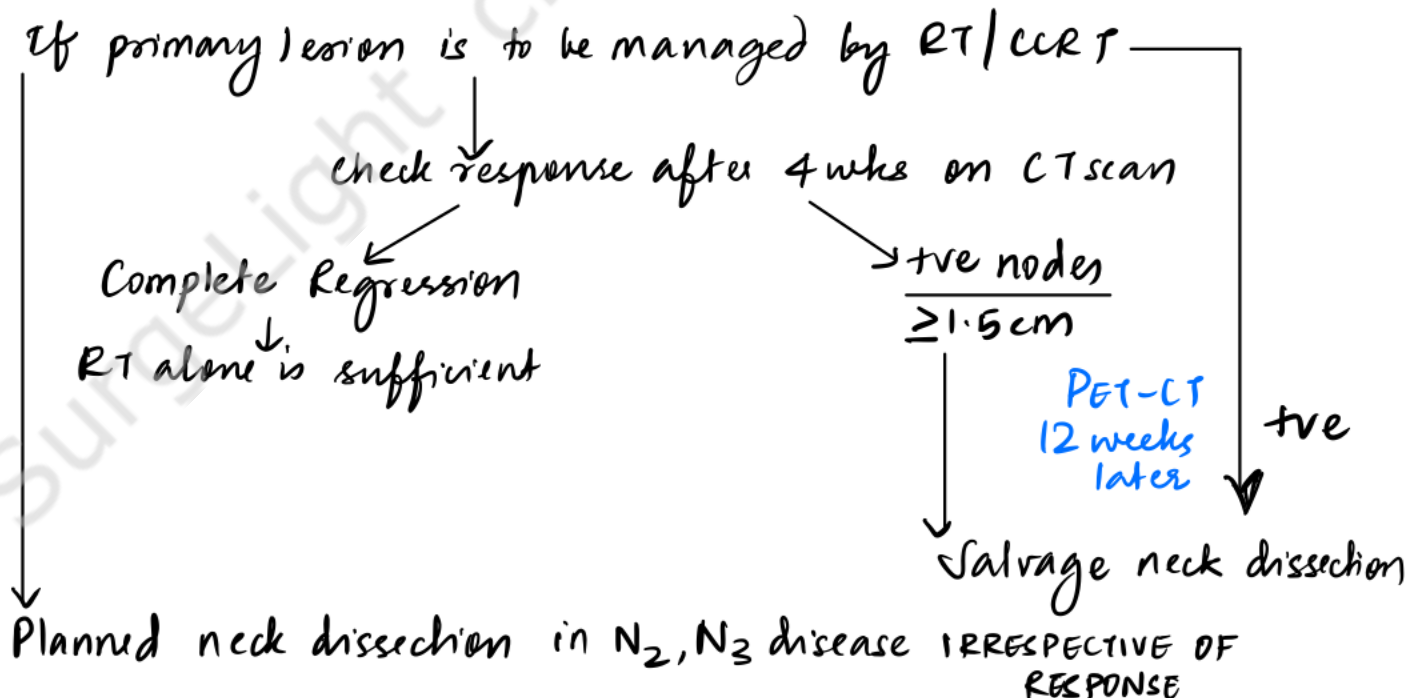 If primary lesion is to be managed by RT/CCRT
check response after 4 wks on CT scan
Complete Regression
RT alone is sufficient
+ve nodes
≥1.5 cm
PET-CT
12 weeks
later
+ve
Salvage neck dissection
Planned neck dissection in N₂, N₃ disease IRRESPECTIVE OF
RESPONSE
SurgeLight